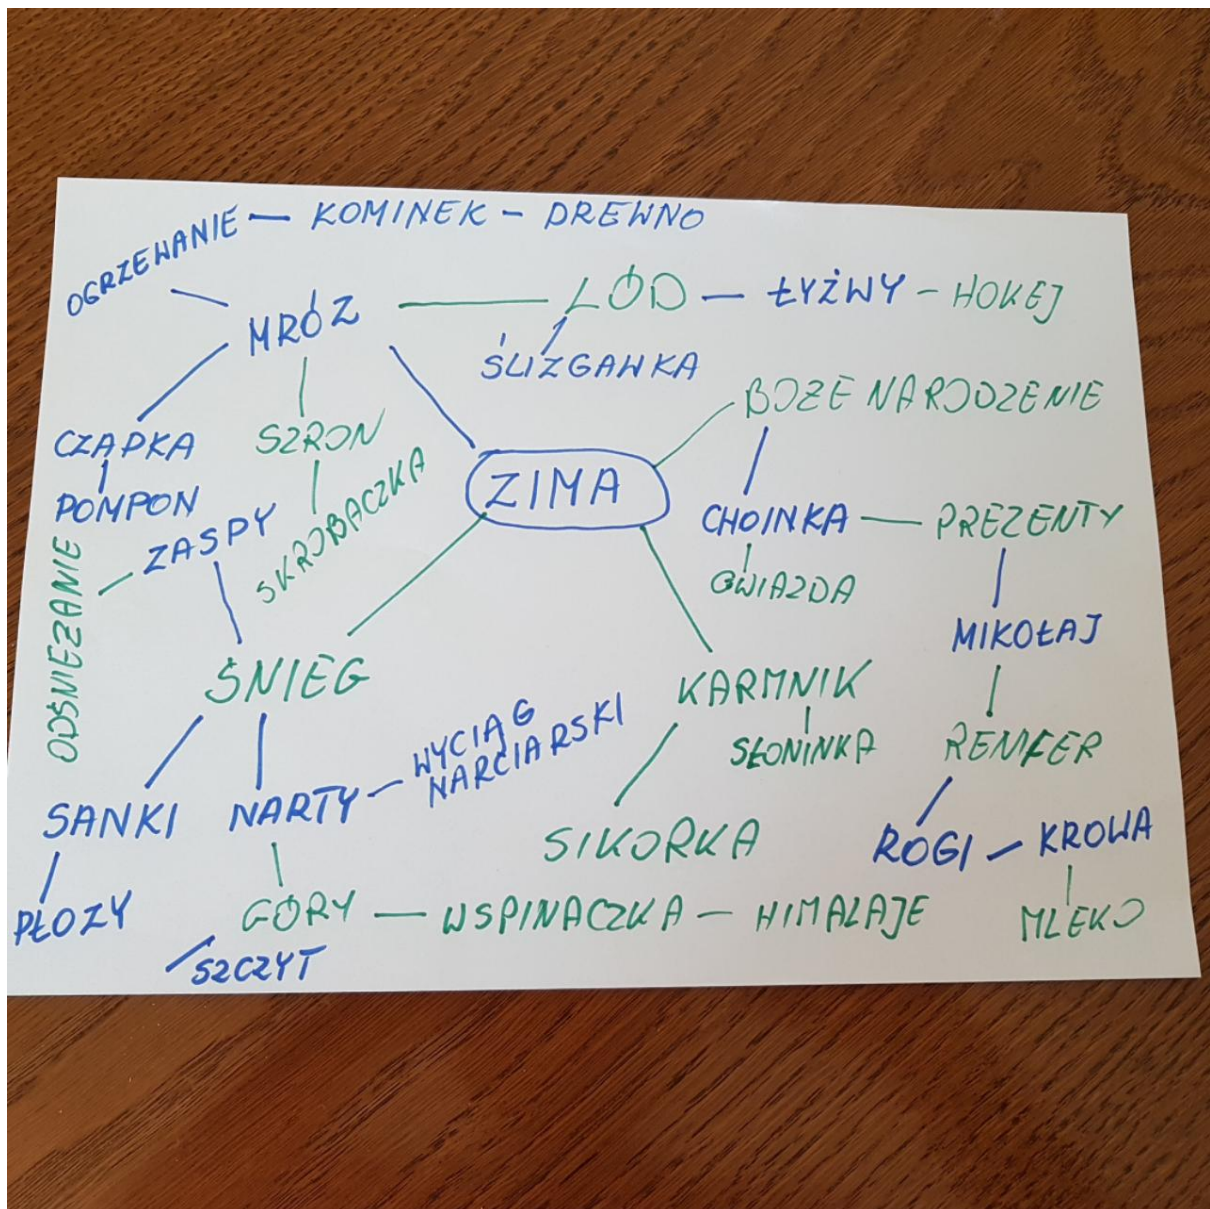 OGRZEWANIE — KOMINEK – DREWNO
MRÓZ — LÓD — ŁYŻWY – HOKEJ
ŚLIZGAWKA
BOŻE NARODZENIE
CZAPKA
SZRON
POMPON
ZASPY
SKROBACZKA
ZIMA
CHOINKA — PREZENTY
GWIAZDA
ODŚNIEŻANIE
MIKOŁAJ
ŚNIEG
KARMNIK
SŁONINKA
RENIFER
WYCIĄG
NARCIARSKI
SANKI
NARTY
SIKORKA
ROGI – KROWA
PŁOZY
GÓRY — WSPINACZKA — HIMALAJE
MLEKO
SZCZYT